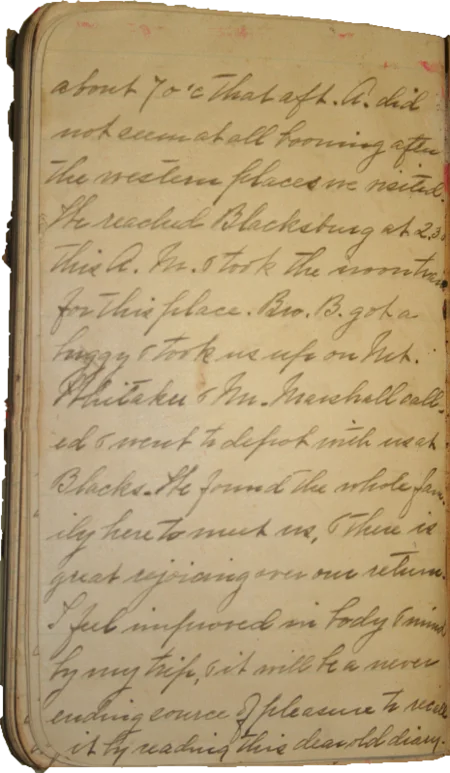 about 7 o'c that aft. A. did
not seem at all booming after
the western places we visited.
We reached Blacksburg at 2.30
this A. M. & took the noon train
for this place. Bro. B. got a
buggy & took us up on Mt.
Whitaker & Mr. Marshall call-
ed & went to depot with us at
Blacks. We found the whole fam-
ily here to meet us, & there is
great rejoicing over our return.
I feel improved in body & mind
by my trip, & it will be a never
ending source of pleasure to recall
it by reading this dear old diary.